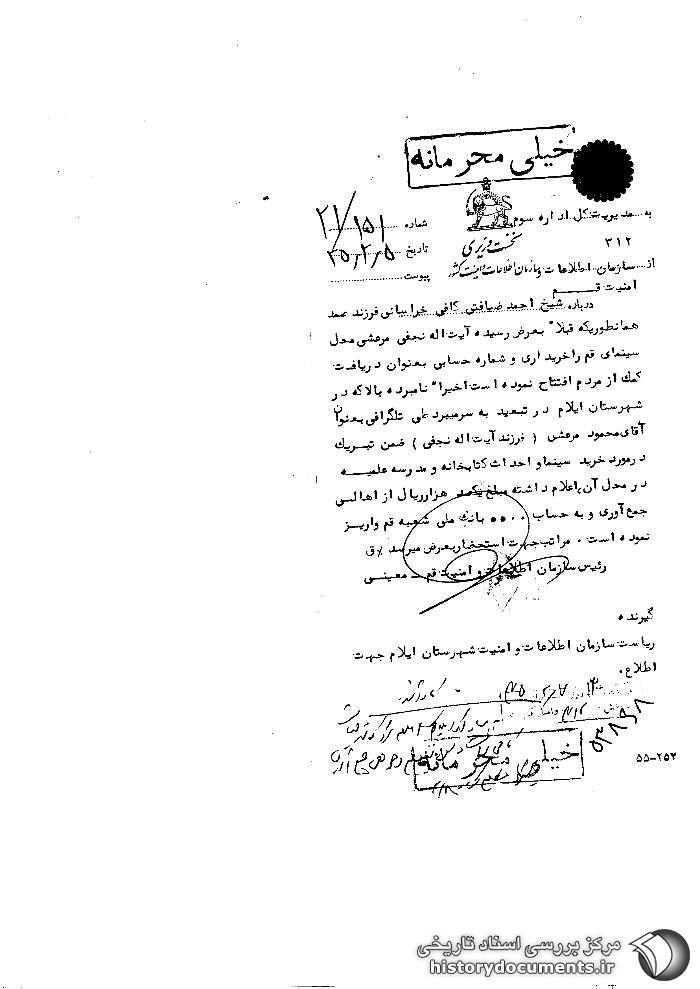 خیلی محرمانه
به مدیریت کل اداره سوم
۳۱۲
نخست وزیری
شماره ۲۱/۱۵۱
تاریخ ۳۵/۲/۵
از سازمان اطلاعات و امنیت قم
سازمان اطلاعات و امنیت کشور
پیوست
درباره شیخ احمد ضیافتی کافی خراسانی فرزند محمد
همانطوریکه قبلا" بعرض رسیده آیت اله نجفی مرعشی محل
سینمای قم را خریداری و شماره حسابی بعنوان دریافت
کمک از مردم افتتاح نموده است اخیرا" نامبرده بالا که در
شهرستان ایلام در تبعید به سر میبرد طی تلگرافی بعنوان
آقای محمود مرعشی ( فرزند آیت اله نجفی ) ضمن تبریک
در مورد خرید سینما و احداث کتابخانه و مدرسه علمیه
در محل آن اعلام داشته مبلغ یکصد هزار ریال از اهالی
جمع آوری و به حساب ۵۰۰۰ بانک ملی شعبه قم واریز
نموده است . مراتب جهت استحضار بعرض میرسد
رئیس سازمان اطلاعات و امنیت قم - معینی
گیرنده
ریاست سازمان اطلاعات و امنیت شهرستان ایلام جهت
اطلاع .
۵۳۸۹۸
خیلی محرمانه
۵۵-۲۵۲
مرکز بررسی اسناد تاریخی
historydocuments.ir